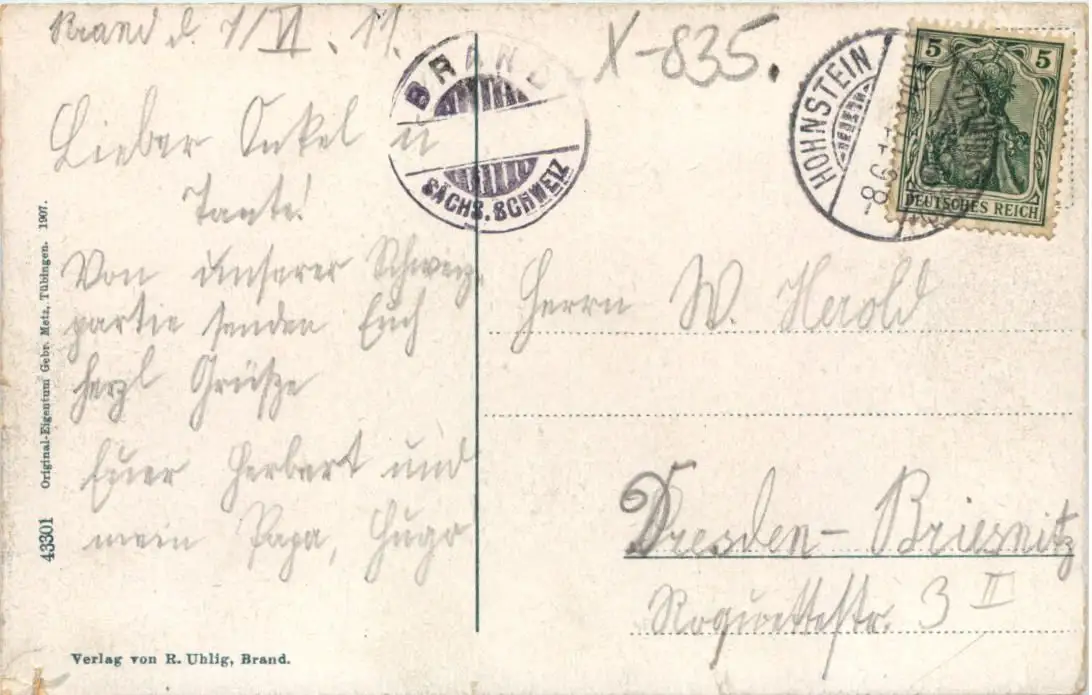 Brand d. 7/VI. 11.
X-835.
BRAND
SÄCHS. SCHWEIZ
HOHNSTEIN
8.6.
5 5
DEUTSCHES REICH
Lieber Onkel u
Tante!
Von unserer Schweiz-
partie senden Euch
herzl Grüße
Euer Herbert und
mein Papa, Hugo
Herrn W. Herold
Dresden-Briesnitz
Roquettestr. 3 II
43301 Original-Eigentum Gebr. Metz, Tübingen. 1907.
Verlag von R. Uhlig, Brand.